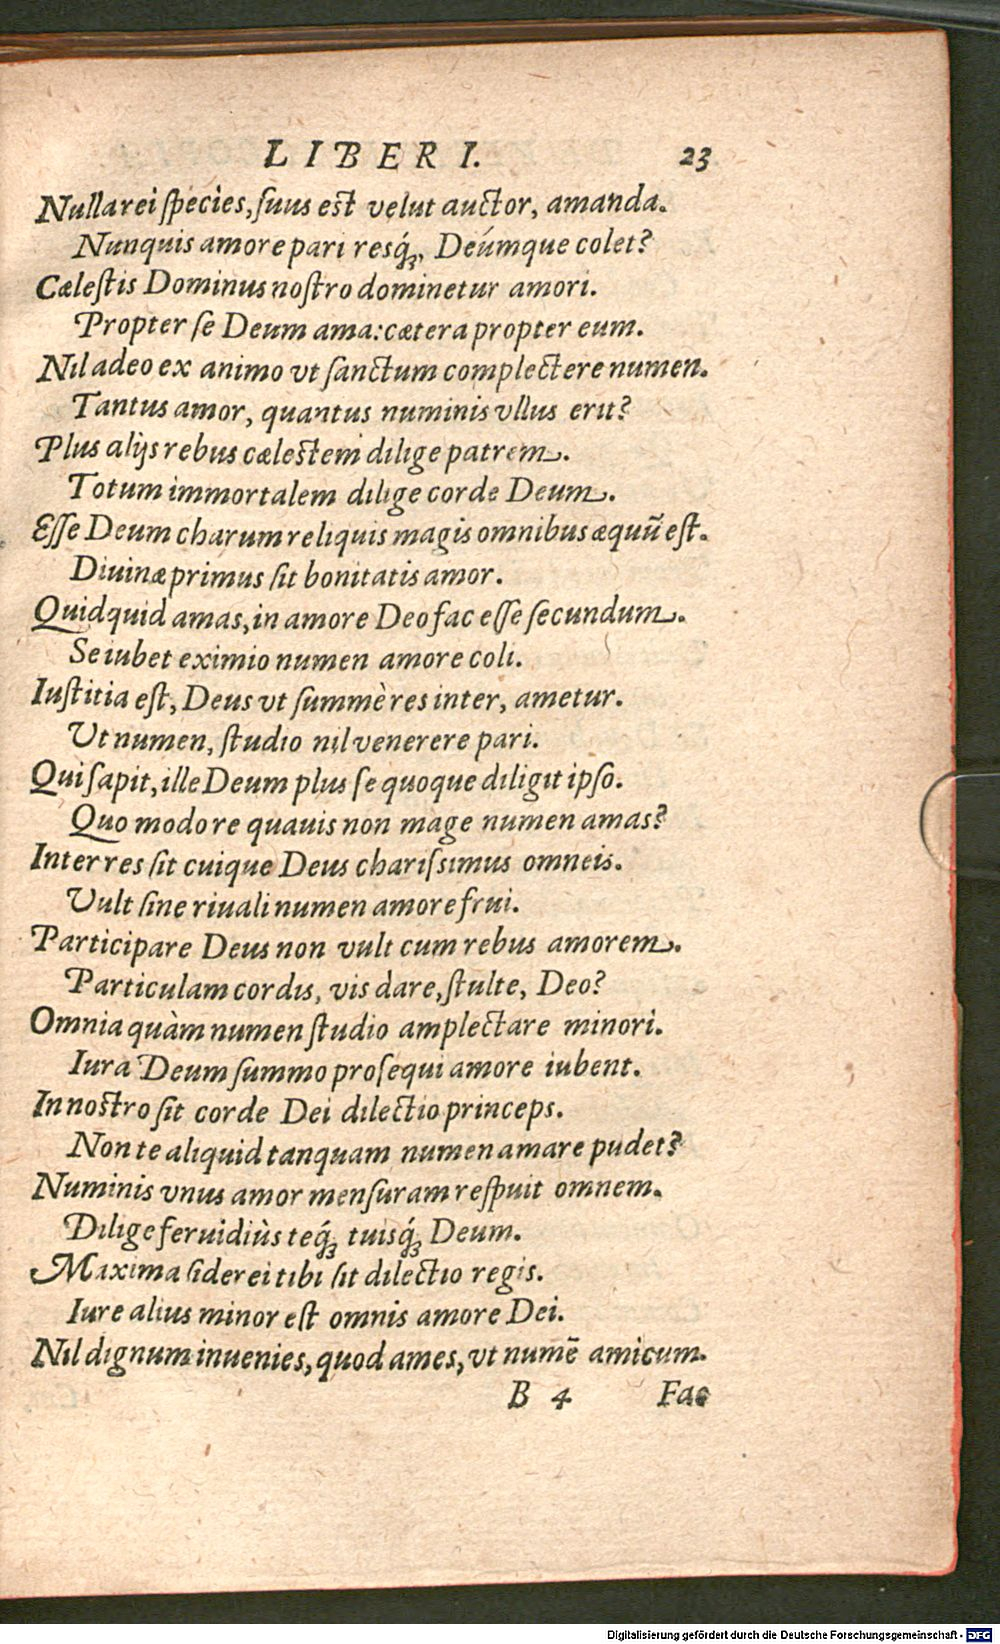 LIBER I. 23
Nulla rei ſpecies, ſuus eſt velut auctor, amanda.
Nunquis amore pari resq́;, Deúmque colet?
Cæleſtis Dominus noſtro dominetur amori.
Propter ſe Deum ama: cætera propter eum.
Nil adeo ex animo vt ſanctum complectere numen.
Tantus amor, quantus numinis vllus erit?
Plus alijs rebus cæleſtem dilige patrem.
Totum immortalem dilige corde Deum.
Eſſe Deum charum reliquis magis omnibus æquū eſt.
Diuinæ primus ſit bonitatis amor.
Quidquid amas, in amore Deo fac eſſe ſecundum.
Se iubet eximio numen amore coli.
Iuſtitia eſt, Deus vt ſummè res inter, ametur.
Ut numen, ſtudio nil venerere pari.
Qui ſapit, ille Deum plus ſe quoque diligit ipſo.
Quo modo re quauis non mage numen amas?
Inter res ſit cuique Deus chariſsimus omneis.
Vult ſine riuali numen amore frui.
Participare Deus non vult cum rebus amorem.
Particulam cordis, vis dare, ſtulte, Deo?
Omnia quàm numen ſtudio amplectare minori.
Iura Deum ſummo proſequi amore iubent.
In noſtro ſit corde Dei dilectio princeps.
Non te aliquid tanquam numen amare pudet?
Numinis vnus amor menſuram reſpuit omnem.
Dilige feruidiùs teq́; tuisq́; Deum.
Maxima ſiderei tibi ſit dilectio regis.
Iure alius minor eſt omnis amore Dei.
Nil dignum inuenies, quod ames, vt numē amicum.
B 4 Fac
Digitalisierung gefördert durch die Deutsche Forschungsgemeinschaft - DFG